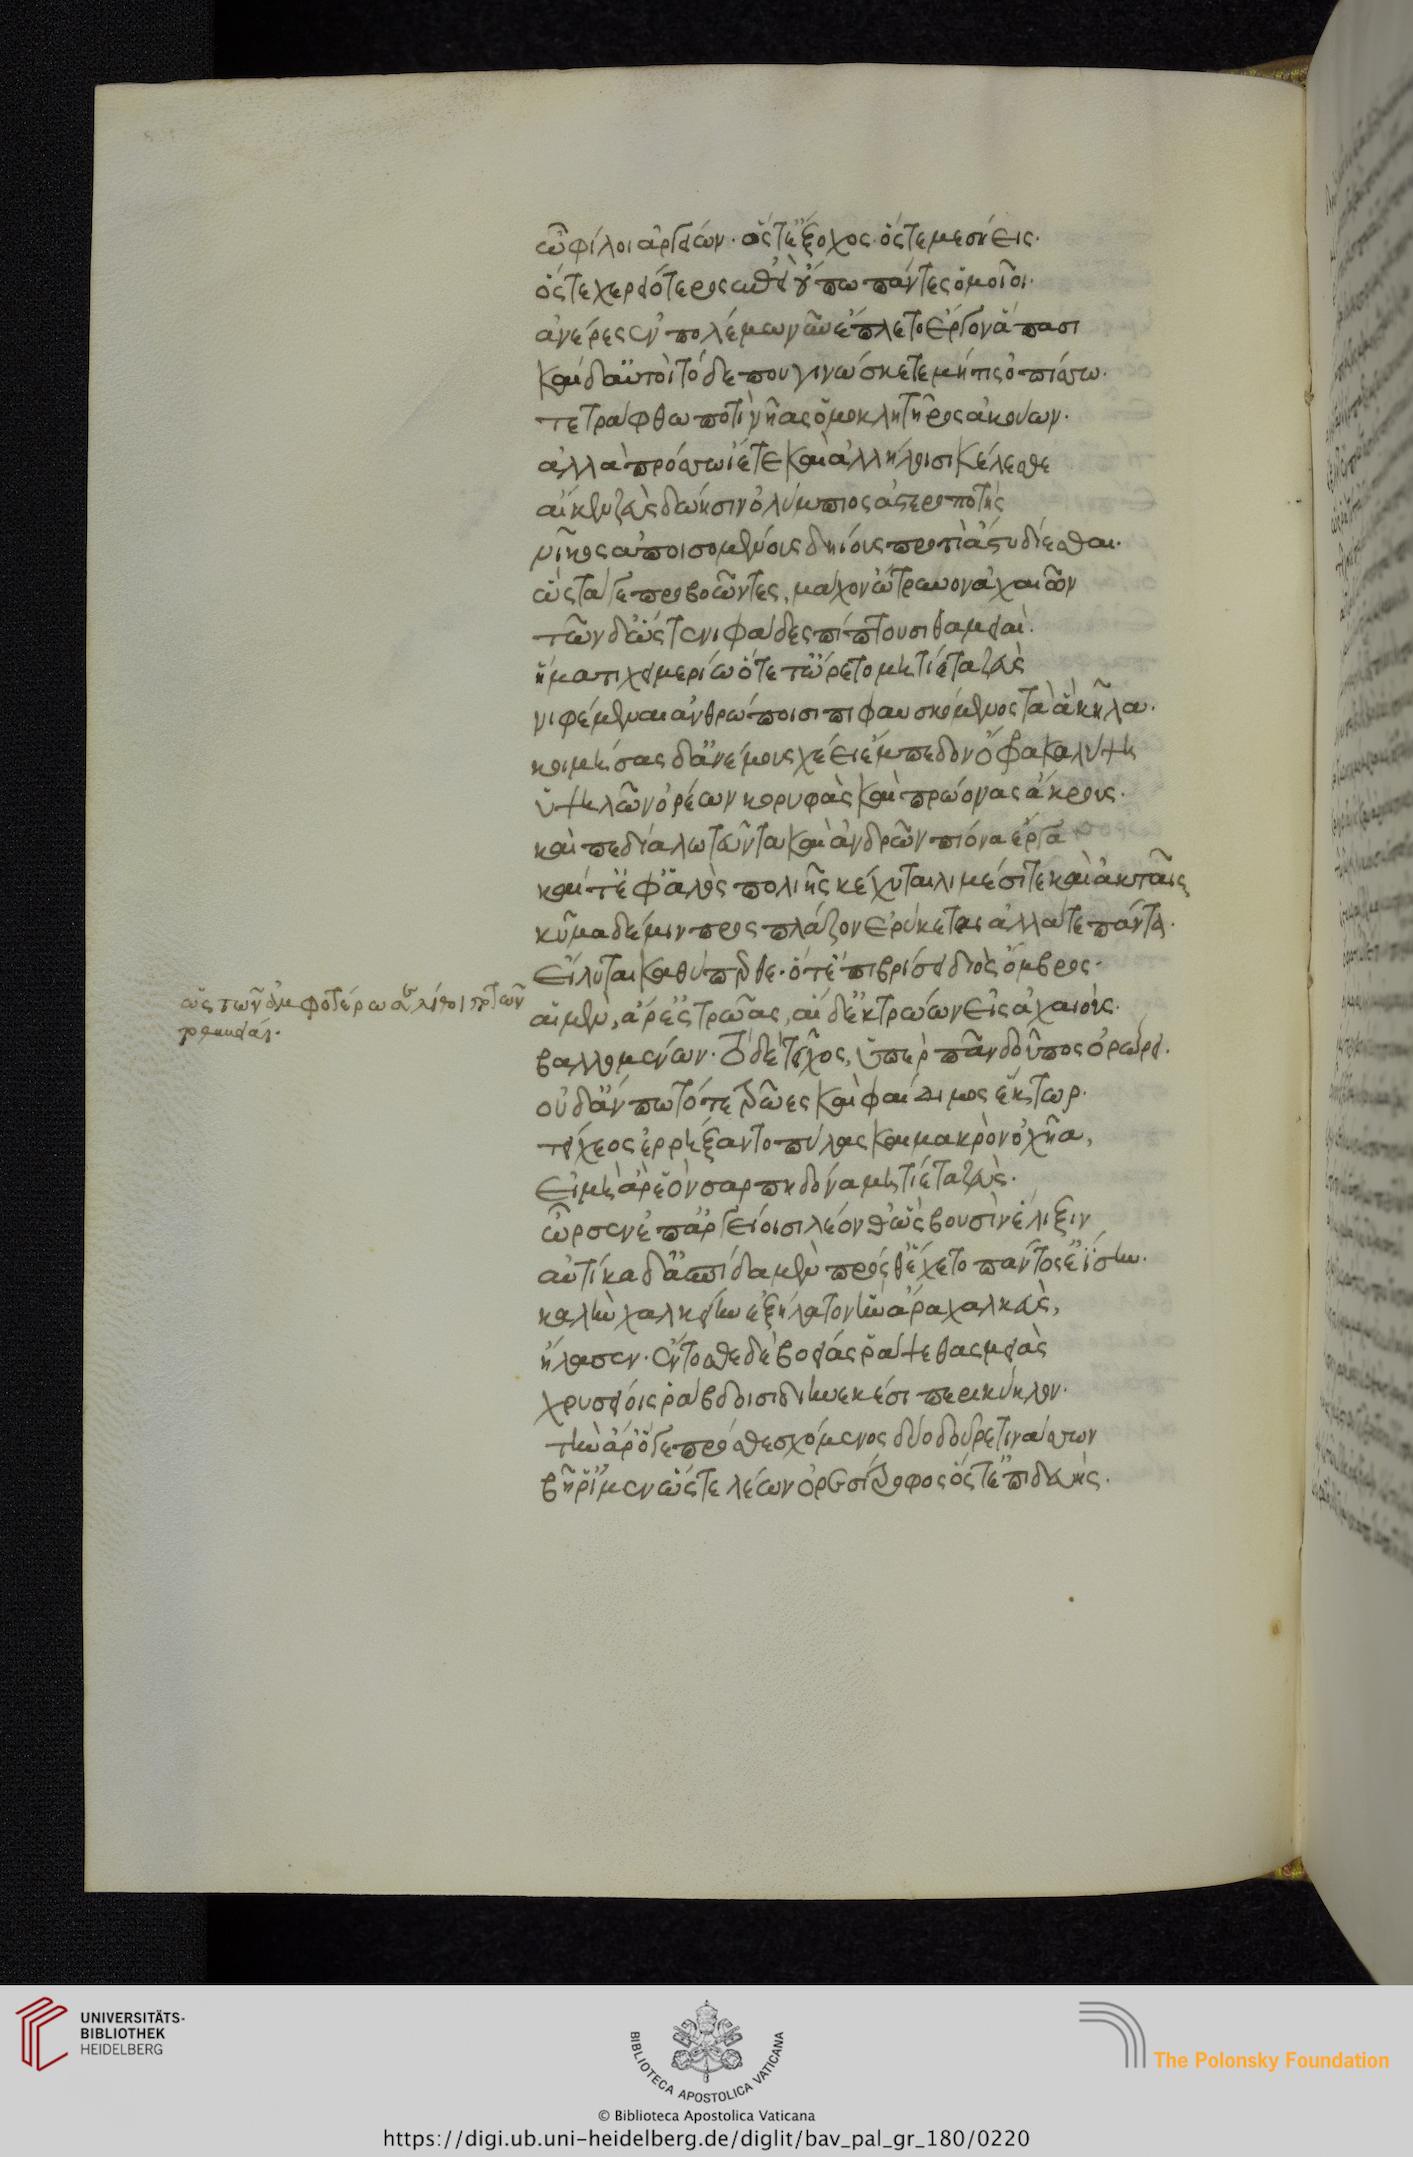 ὦ φίλοι ἀργείων· ὅς τ' ἔξοχος· ὅς τε μεσήεις·
ὅς τε χερειότερος ἐπεὶ οὔπω πάντες ὁμοῖοι·
ἀνέρες ἐν πολέμω νῦν ἔπλετο ἔργον ἅπασι
καὶ δ' αὐτοὶ τόδε που γινώσκετε μή τις ὀπίσσω·
τετράφθω ποτὶ νῆας ὁμοκλητῆρος ἀκούων·
ἀλλὰ πρόσσω ἵετε καὶ ἀλλήλοισι κέλεσθε
αἴ κε ζεὺς δώησιν ὀλύμπιος ἀστεροπητὴς
νεῖκος ἀπωσαμένους δηίους προτὶ ἄστυ δίεσθαι·
ὣς τώ γε προβοῶντες, μάχην ὤτρυνον ἀχαιῶν
τῶν δ' ὥς τε νιφάδες πίπτουσι θαμειαὶ·
ἤματι χειμερίω ὅτε τ' ὤρετο μητιέτα ζεὺς
νιφέμεν ἀνθρώποισι πιφαυσκόμενος τὰ ἃ κῆλα·
κοιμήσας δ' ἀνέμους χέει ἔμπεδον ὄφρα καλύψη
ὑψηλῶν ὀρέων κορυφὰς καὶ πρώονας ἄκρους·
καὶ πεδία λωτῶντα καὶ ἀνδρῶν πίονα ἔργα
καί τ' ἐφ' ἁλὸς πολιῆς κέχυται λιμέσι τε καὶ ἀκταῖς
κῦμα δέ μιν προσπλάζον ἐρύκεται ἄλλα τε πάντα·
εἴλυται καθύπερθε· ὅτ' ἐπιβρίσει διὸς ὄμβρος·
ὣς τῶν ἀμφοτέρωσε λίθοι πωτῶντο
θαμειαί·
αἱ μὲν, ἄρ' ἐς τρῶας, αἱ δ' ἐκ τρώων εἰς ἀχαιούς·
βαλλομένων· τὸ δὲ τεῖχος, ὕπερ πᾶν δοῦπος ὀρώρει·
οὐδ' ἄν πω τότε τρῶες καὶ φαίδιμος ἕκτωρ·
τείχεος ἐρρήξαντο πύλας καὶ μακρὸν ὀχῆα,
εἰ μὴ ἄρ' ἑὸν σαρπηδόνα μητιέτα ζεὺς·
ὦρσεν ἐπ' ἀργείοισι λέονθ' ὣς βουσὶν ἕλιξιν
αὐτίκα δ' ἀσπίδα μὲν πρόσθ' ἔσχετο πάντοσ' ἐΐσην·
καλὴν χαλκείην ἐξήλατον ἣν ἄρα χαλκεὺς,
ἤλασεν· ἔντοσθε δὲ βοείας ῥάψε θαμειὰς
χρυσείοις ῥάβδοισι διηνεκέσι περὶ κύκλον·
τὴν ἄρ' ὅ γε πρόσθε σχόμενος δύο δοῦρε τινάσσων
βῆ ῥ' ἴμεν ὥς τε λέων ὀρεσίτροφος ὅς τ' ἐπιδευὴς·
UNIVERSITÄTS-
BIBLIOTHEK
HEIDELBERG
BIBLIOTECA APOSTOLICA VATICANA
The Polonsky Foundation
© Biblioteca Apostolica Vaticana
https://digi.ub.uni-heidelberg.de/diglit/bav_pal_gr_180/0220